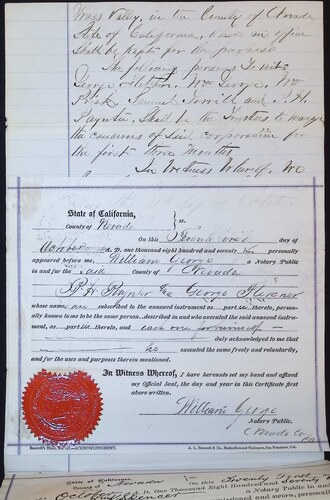 Grass Valley, in the County of Nevada
State of California, where an office
Shall be kept for the purpose
The following persons to wit:
George Fletcher, Wm George, Wm
Samuel Terrill and P. H.
Paynter, Shall be the Trustees to manage
the concerns of Said Corporation for
the first three months
In Witness Whereof, We
State of California,
County of Nevada
ss.
On this day of
October A.D. one thousand eight hundred and seventy
personally
appeared before me, William George a Notary Public
in and for the said County of Nevada
P. H. Paynter George Fletcher
whose name subscribed to the annexed instrument as part thereto, person-
ally known to me to be the person described in and who executed the said annexed instru-
ment, as part thereto, and each one for himself
duly acknowledged to me that
he executed the same freely and voluntarily,
and for the uses and purposes therein mentioned.
In Witness Whereof, I have hereunto set my hand and affixed
my Official Seal, the day and year in this Certificate first
above written.
William George
Notary Public.
Nevada Co
ACKNOWLEDGMENT.
A. L. Bancroft & Co., San Francisco, Cal.
State of California
County of Nevada
On this Twenty First
October A. D. One Thousand Eight Hundred and Seventy